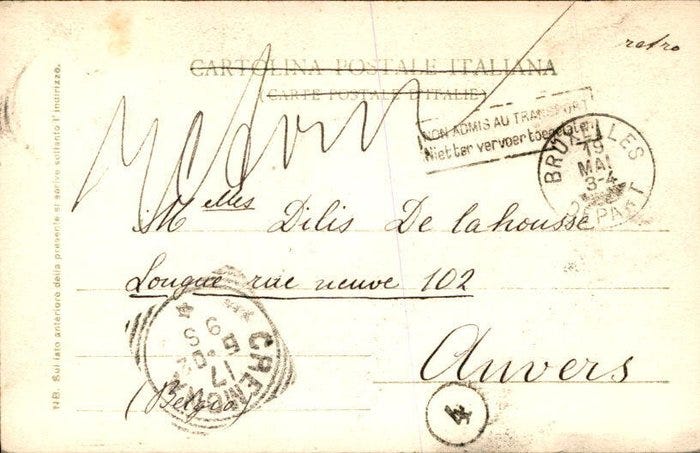 retro
CARTOLINA POSTALE ITALIANA
(CARTE POSTALE D'ITALIE)
NON ADMIS AU TRANSPORT
Niet ter vervoer toegelaten
BRUXELLES
19
MAI
3-4
DEPART
Melles Dilis De lahousse
Longue rue neuve 102
Anvers
(Belgio)
CREMONA
17
4
NB. Sul lato anteriore della presente si scrive soltanto l'indirizzo.